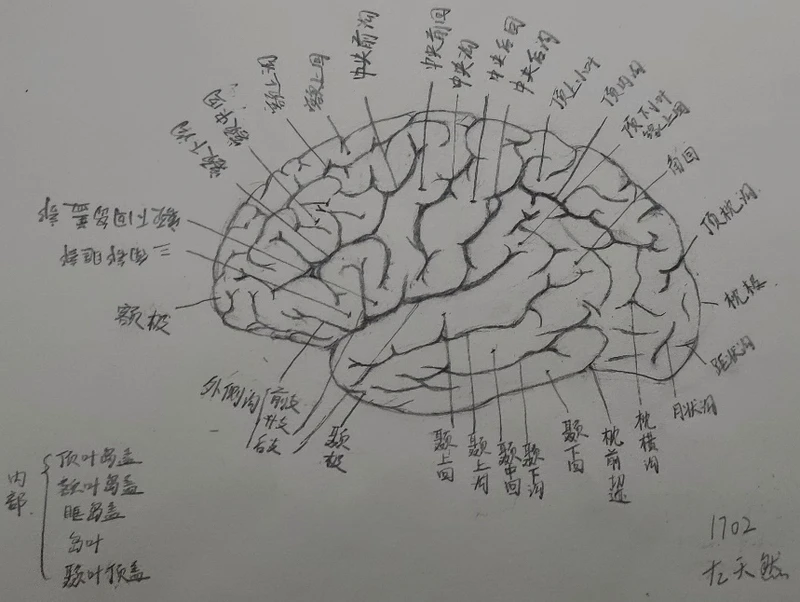 中央前沟
中央前回
中央沟
中央后回
中央后沟
顶上小叶
顶内沟
顶下小叶
缘上回
角回
顶枕沟
枕极
距状沟
月状沟
额上沟
额上回
额中回
额下沟
额下回岛盖部
三角部眶部
额极
外侧沟
前支
升支
后支
颞极
颞上回
颞上沟
颞中回
颞下沟
颞下回
枕前切迹
枕横沟
内部
顶叶岛盖
额叶岛盖
眶岛盖
岛叶
颞叶顶盖
1702
左天然